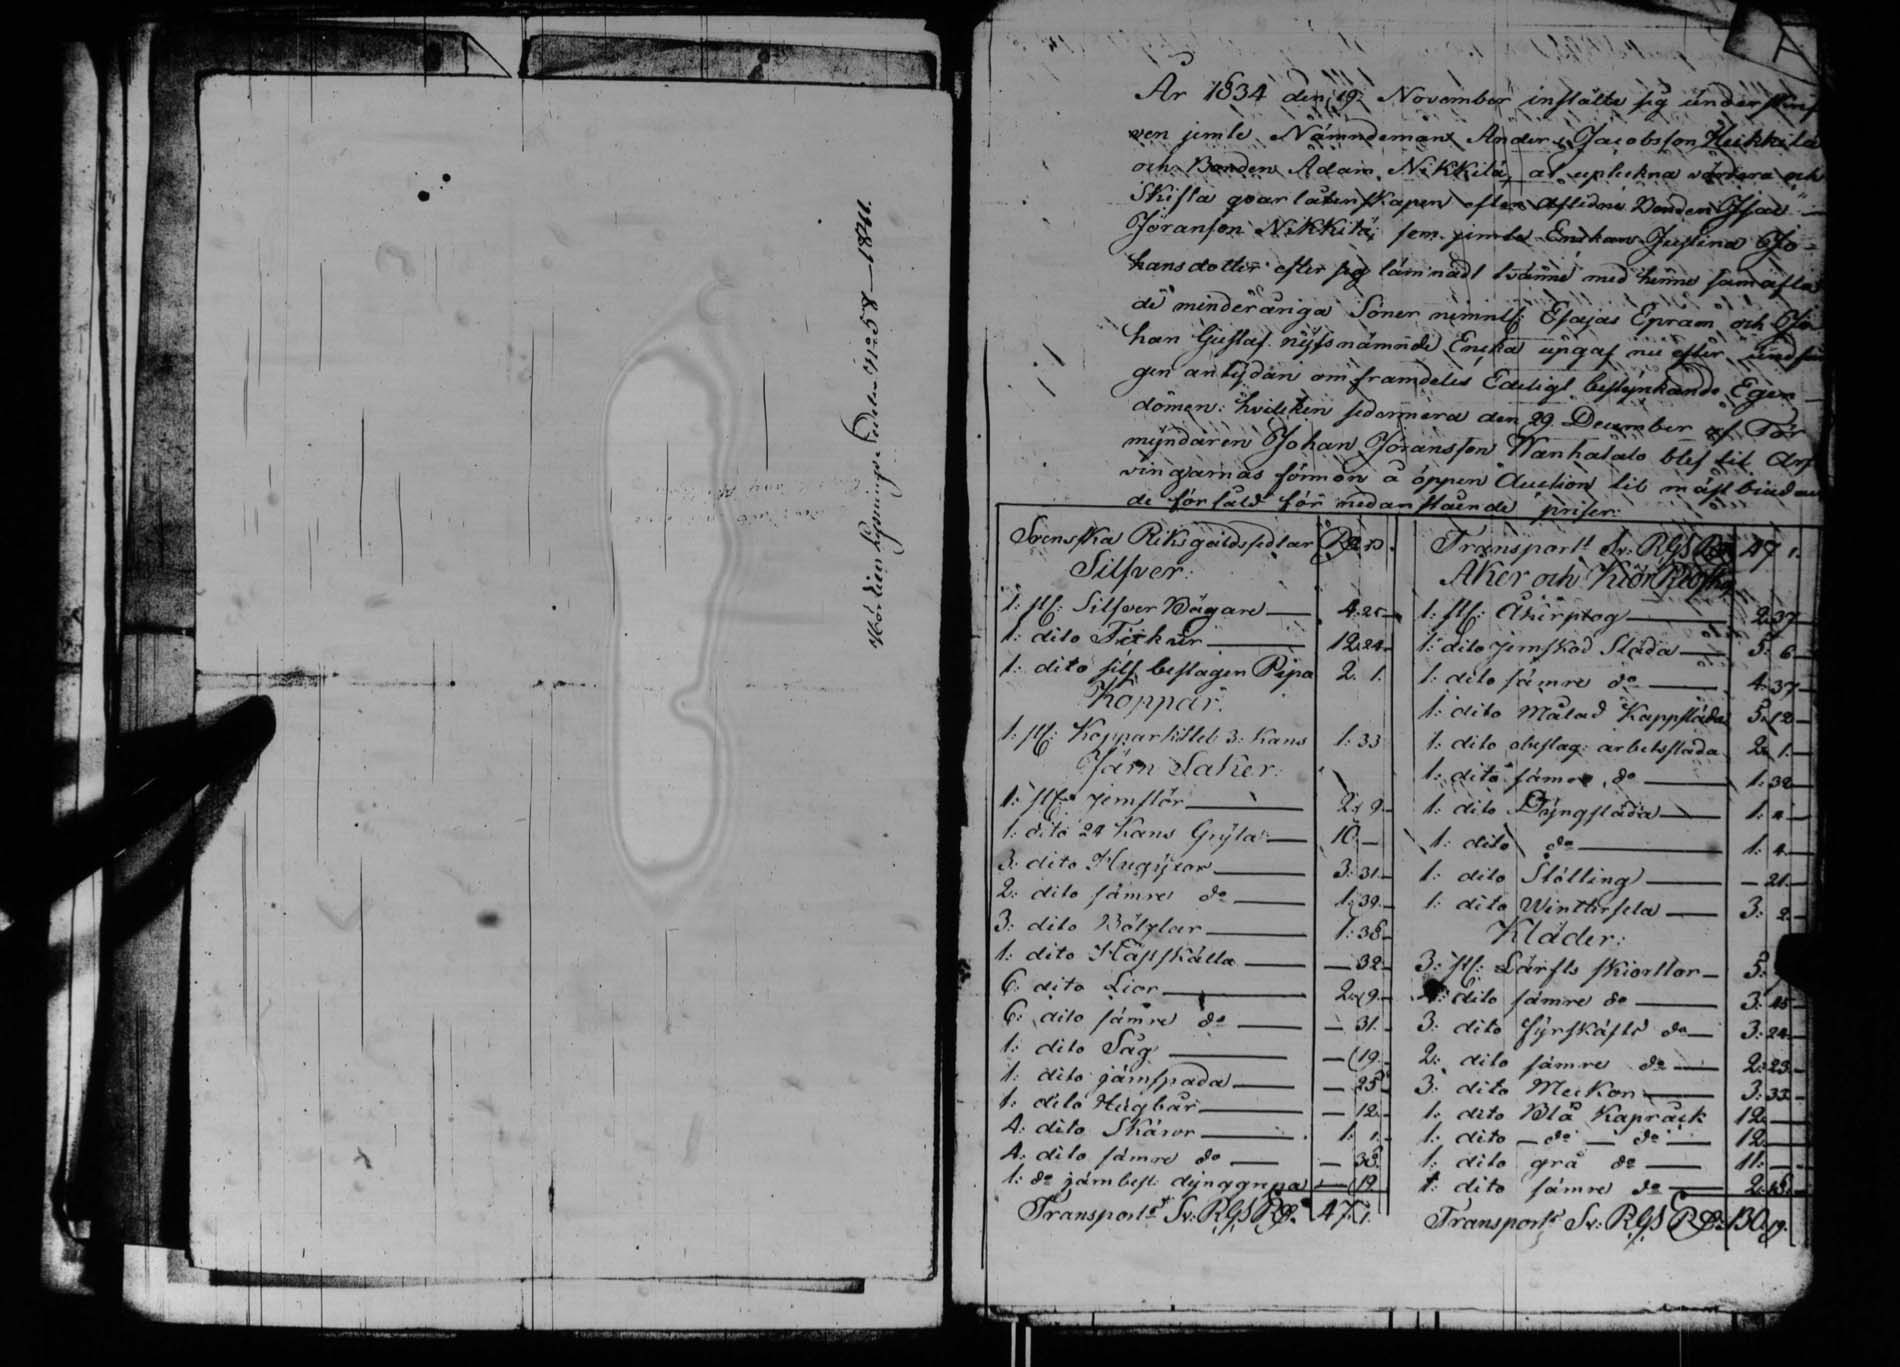 År 1834 den 19. November instälte sig underskrif
ven jemte Nämndeman Anders Jacobsson Heikkilä
och Bonden Adam Nikkilä, at uptekna värdera och
Skifta qvarlåtenskapen efter Aflidne Bonden Isac
Jöransson Nikkilä, som jemte Enkan Justina Jo-
hansdotter efter sig lämnadt tvänne med henne samafla
de minderåriga Söner nemnl: Esajas Epram och Jo
han Gustaf. nyssnämnde Enka upgaf nu efter undfån
gen antydan om framdeles Edeligt bestyrkande Egen
domen: hvilcken sedermera den 29 December af För
myndaren Johan Jöransson Wanhatalo blef til Arf
vingarnas förmon å öppen Auction til mäst biudan
de försåld för nedanstående priser:
Svenska Riksgäldssedlar Rdr
Silfver:
1: st: Silfver Bägare 4. 25
1: dito Fickur 12. 24
1: dito silf beslagen Pipa 2. 1.
Koppar:
1: st: Kopparkittel 3: Kans 1: 33
Järn Saker:
1: st: jernstör 2. 9
1: dito 24 Kans Gryta 10. —
3: dito Hugyxor 3: 31
2: dito sämre do 1: 39
3: dito 1: 38
1: dito — 32
6: dito Lior 2. 9
6: dito sämre do — 31
1: dito Såg — 19
1: dito järnspada — 25
1: dito — 12
4: dito Skäror 1: 1
4: dito sämre do — 38
1: do järnbesl: dynggrepa — 12
Transport Sv: RGS Rdr 47. 1.
Transport Sv: RGS Rdr 47 1.
Åker och Kiör Redskap
1: st: Åkerplog 2. 37
1: dito jernskod Släda 5: 6
1: dito sämre do 4. 37
1: dito Målad Kappsläda 5. 12
1: dito obeslag: arbetssläda 2. 1
1: dito sämre do 1: 32
1: dito Dyngsläda 1: 4
1: dito do 1: 4
1: dito Stötting — 21
1: dito 3: 2
Kläder:
3: st: Lärfts skiorttor 5:
dito sämre do 3: 45
3: dito fyrskäfts do 3: 24
2: dito sämre do 2: 23
3: dito Meckor 3: 33
1: dito Blå Kapråck 12 —
1: dito — do — do 12 —
1: dito grå do 11: —
1: dito sämre do 2: 18
Transport Sv: RGS Rdr 130. 19.